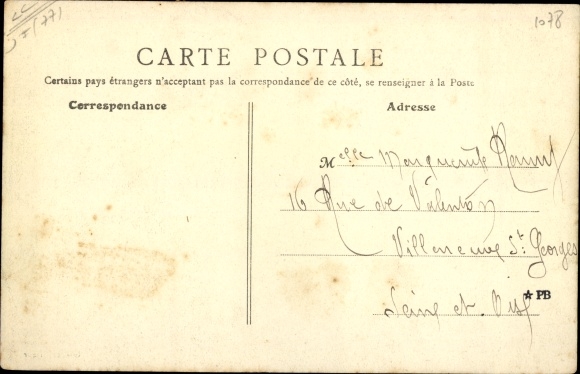 (77)
1078
CARTE POSTALE
Certains pays étrangers n'acceptant pas la correspondance de ce côté, se renseigner à la Poste
Correspondance
Adresse
Melle Marguerite
16 Rue de Valenton
Villeneuve St. Georges
Seine et Oise
★ PB